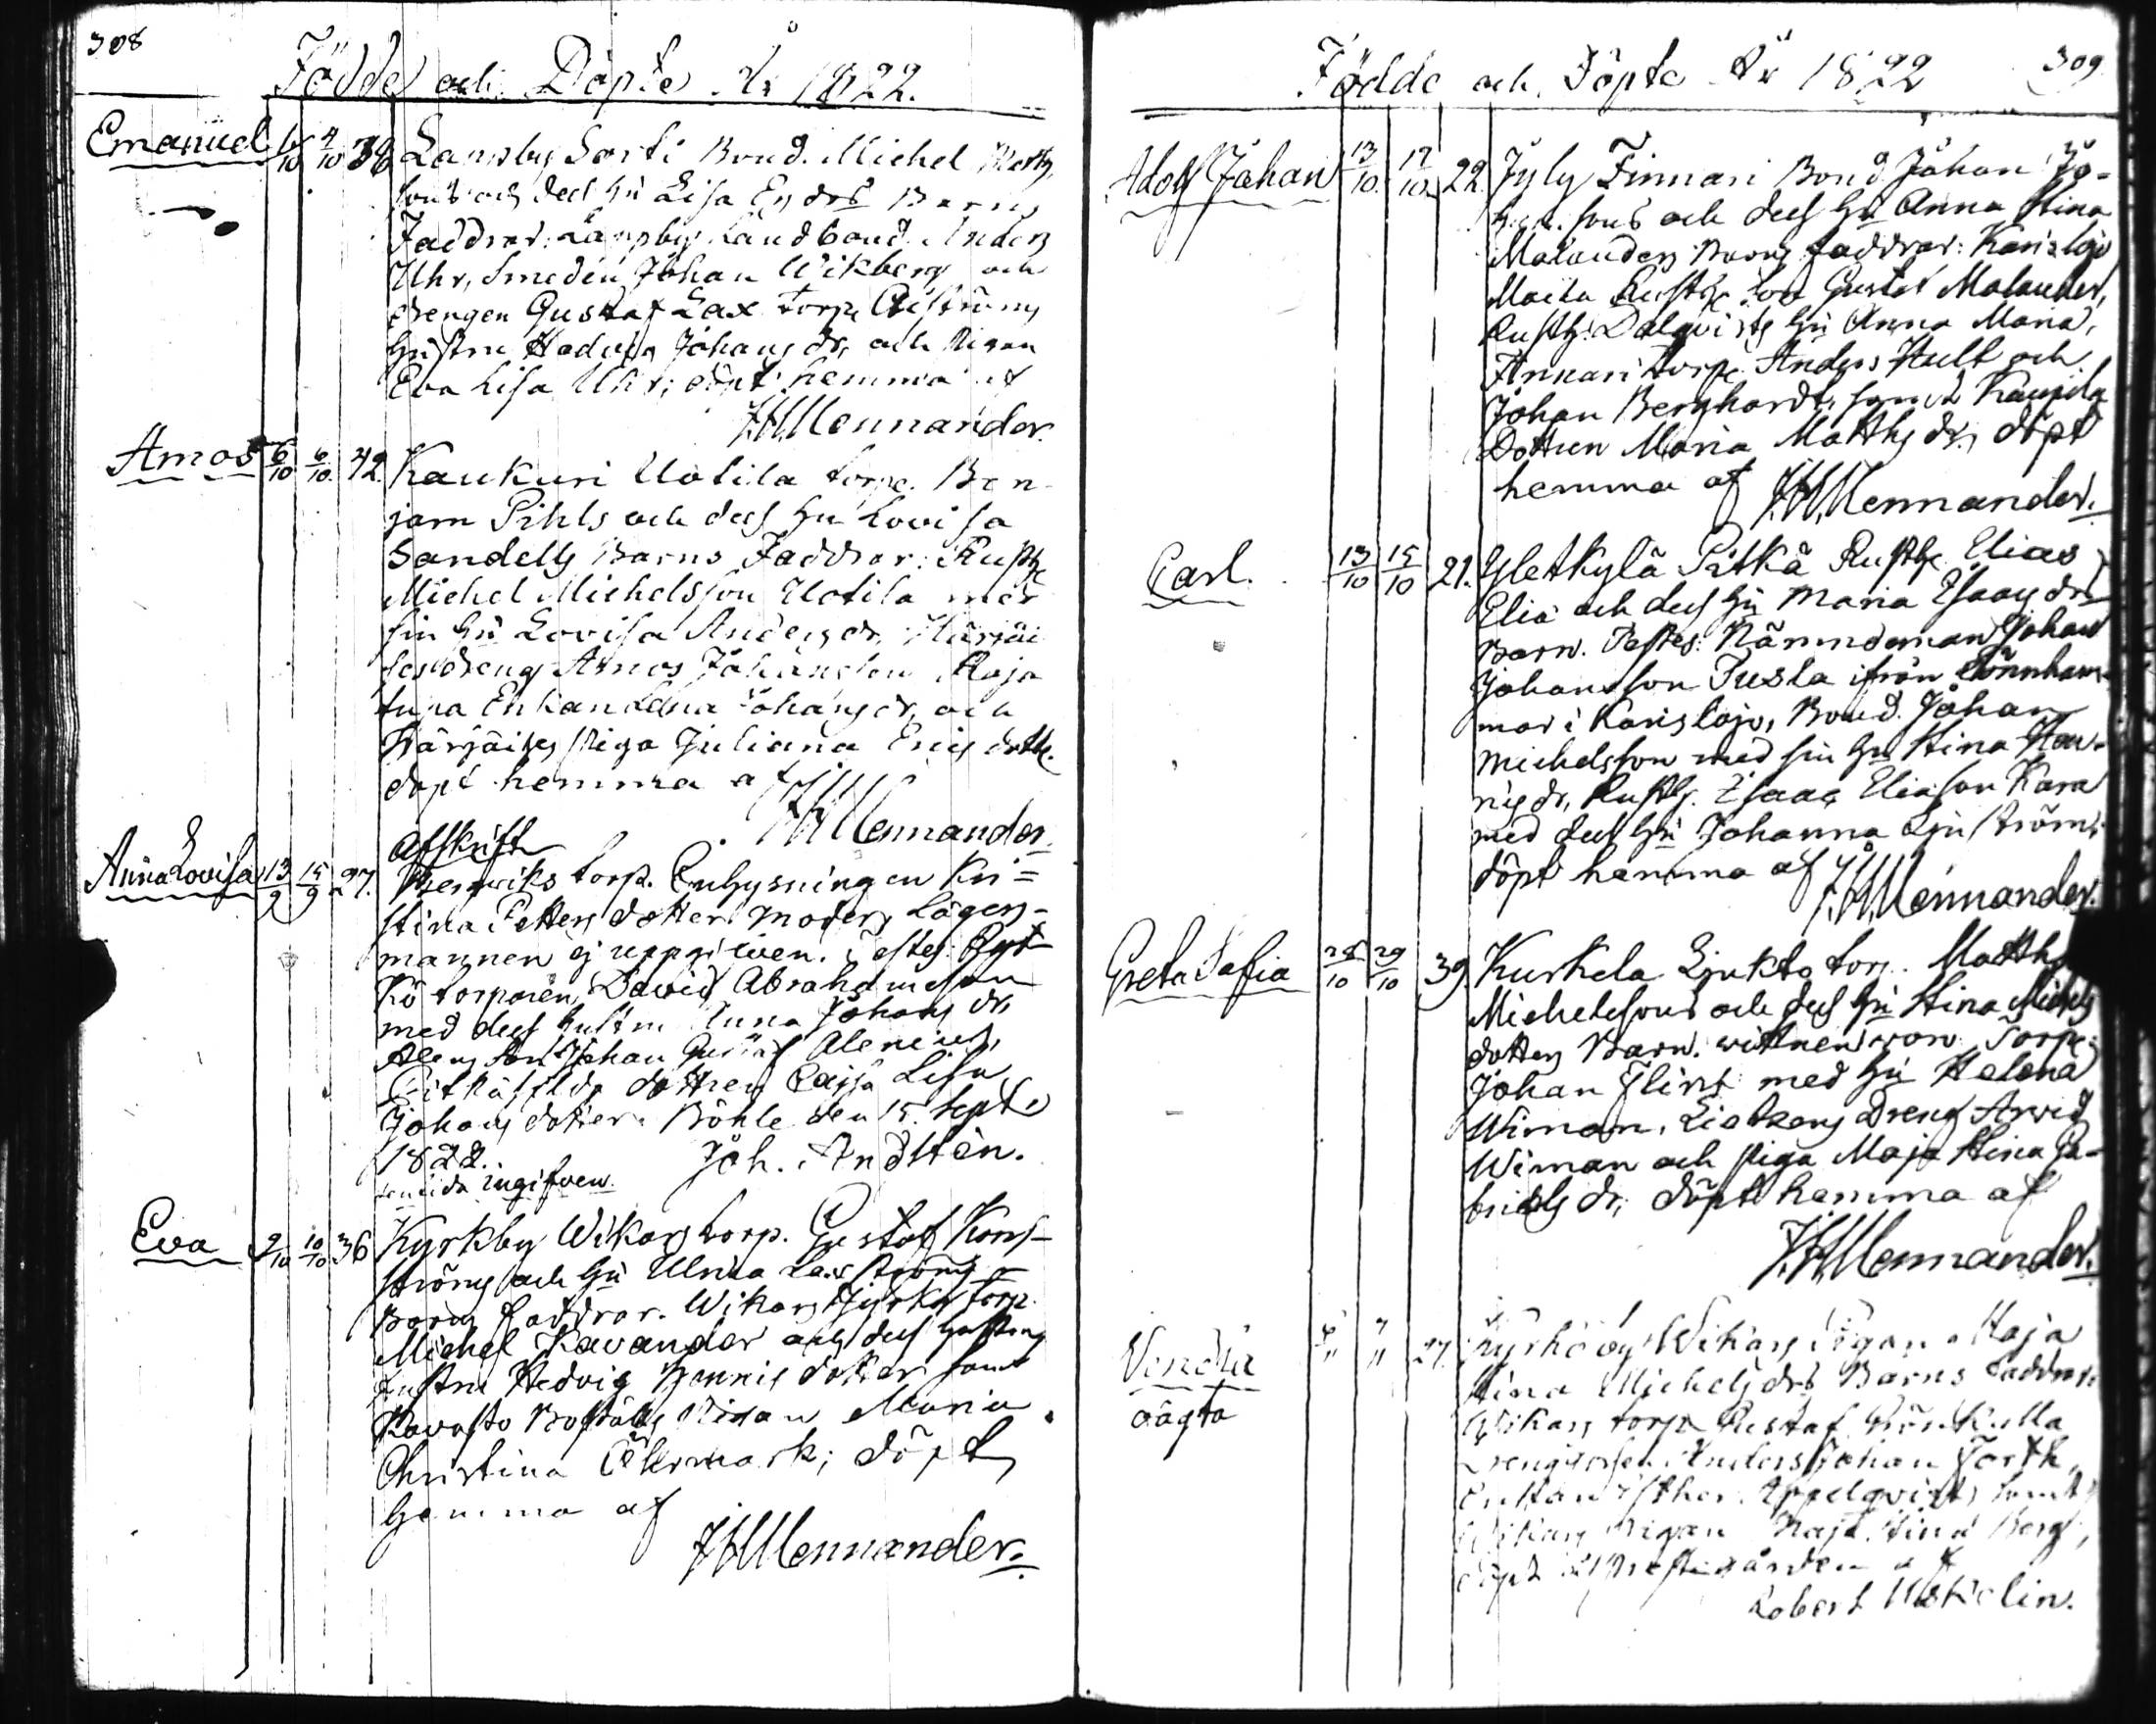 308
Födde och Döpte År 1822.
Emanuel 1/10 4/10 38 Lansby Sorti Bond. Michel Matts
sons och dess hu Lisa Ersdrs Barn,
Faddrar: Lansby Landbond. Anders
Uhr, Smeden Johan Wikberg och
drengen Gustaf Lax torp.
hustru Hedvig Johansdr, och Pigan
Eva Lisa Uhr; döpt hemma af
J.H. Mennander.
Amos 6/10 6/10. 42. Kaukuri Uotila torp. Ben-
jam Pihls och dess hu Lovisa
Sandells Barns Faddrar: Rusth.
Michel Michelsson Uotila med
sin hu Lovisa Andersdr, Härjäi
dreng Amos Johansson Maja
Enkan Lena Johansdr, och
Härjäis Piga Juliana Ericsdotter.
döpt hemma af
J.H. Mennander
Afskrift
Anna Lovisa 13/9 15/9 27. Henriks torp. Inhysningen Kri=
stina Petters dotter. Moders Lägers-
mannen ej uppgifven. Testes:
torparen, David Abrahamsson
med dess hustru Anna Johans dr
son Johan Gustaf Alenius,
dottren Cajsa Lisa
Johans dotter. Böhle den 15 Sept.
1822. Joh. Andstén.
ingifven.
Eva 9/10 10/10 36 Kyrkby Wikars torp. Gustaf Kors-
ströms och hu Ulrica Lagströms
Barn, faddrar. Wikars Kyrkby torp.
Michel Kavander och dess hustru
hustru Hedvig Henricsdotter samt
Boställs Pigan Maria
Christina Åkermark; döpt
hemma af
J.H. Mennander.
Födde och Döpte År 1822 309
Adolf Johan 13/10. 17/10. 22. Jyly Finnari Bond. Johan Jo-
hansons och dess hu Anna Stina
Malanders Barn, faddrar: Karislojo
Maila Rusth. son Gustaf Malander,
Rusth. Dalqvists hu Anna Maria,
Finnari torp. Anders Hult och
Johan Berghardt, samt Kaupila
Dottren Maria Matts dr; döpt
hemma af J.H. Mennander.
Carl. 13/10 15/10 21. Yletkylä Pitkä Rusth. Elias
Elia och dess hu Maria Isaacsdrs
Barn. Testes: Nämndeman Johan
Johansson Tusla ifrån Lönnham-
mar i Karislojo, Bond. Johan
Michelsson med sin hu Stina Hen-
ricsdr, Rusth. Isaac Eliasson Kara
med dess hu Johanna Ljuström;
döpt hemma af
J.H. Mennander.
Greta Safia 28/10 29/10 39. Kurkela Ljukto torp. Matts
Michelssons och dess hu Stina Michels
dotters Barn. wittnen woro Torp.
Johan Flint med hu Helena
Wiman, Dreng Arvid
Wiman och Piga Maja Stina Ga-
brielsdr; döpt hemma af
J.H. Mennander.
Vendla 27. Wikars Pigan Maja
oägta Stina Michelsdrs Barns Faddrar:
Wikars torp. Gustaf Grönkulla
Anders Johan Forth,
Enkan Esther Appelqvist, samt
Wikars Pigan Maja Stina Berg,
döpt i Prestgården af
Robert Hertzelin.